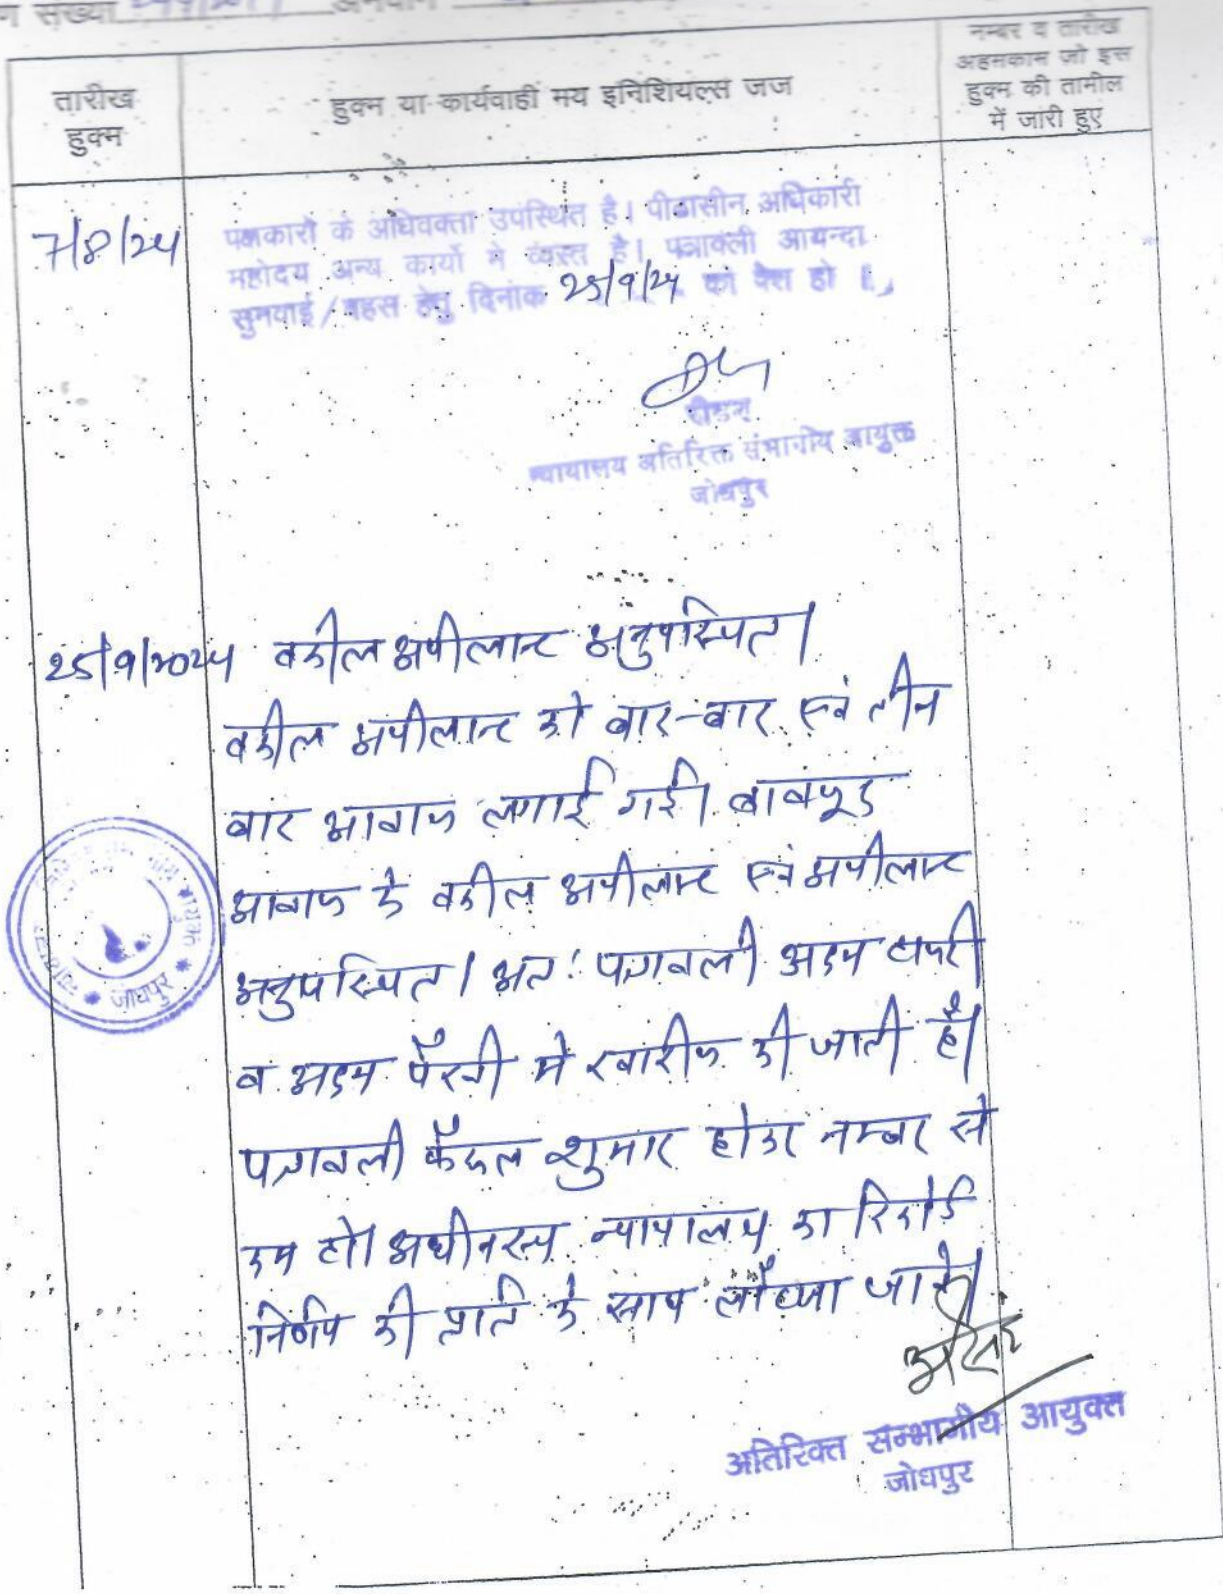 संख्या
तारीख
हुक्म
हुक्म या कार्यवाही मय इनिशियल्स जज
नम्बर व तारीख
अहमकाम जो इस
हुक्म की तामील
में जारी हुए
7/8/24
पक्षकारो के अधिवक्ता उपस्थित है। पीठासीन अधिकारी
महोदय अन्य कार्यो मे व्यस्त है। पत्रावली आयन्दा
सुनवाई / बहस हेतु दिनांक 25/9/24 को पेश हो।
रीडर
न्यायालय अतिरिक्त संभागीय आयुक्त
जोधपुर
25/9/2024 वकील अपीलान्ट अनुपस्थित।
वकील अपीलान्ट को बार-बार एवं तीन
बार आवाज लगाई गई। बावजूद
आवाज के वकील अपीलान्ट एवं अपीलान्ट
अनुपस्थित। अतः पत्रावली अदम हाजरी
व अदम पैरवी मे खारीज की जाती है।
पत्रावली फैसल शुमार होकर नम्बर से
कम हो। अधीनस्थ न्यायालय का रिकोर्ड
निर्णय की प्रति के साथ लौटाया जावे।
जोधपुर
अतिरिक्त सम्भागीय आयुक्त
जोधपुर